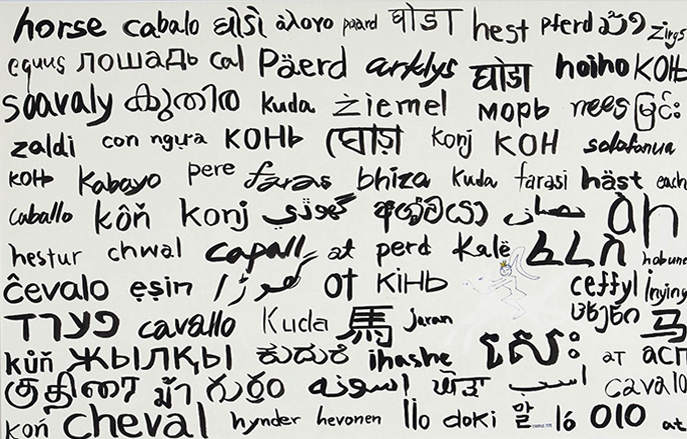 horse cabalo ઘોડો άλογο paard घोडा hest pferd ມ້າ zirgs
equus лошадь cal Päerd arklys घोडा hoiho КОНЬ
soavaly കുതിര kuda żiemel морь nees မြင်း
zaldi con ngựa КОНЬ घोड़ा konj КОН solofanua
конь Kabayo pere faras bhiza kuda farasi häst each
caballo kôň konj گھوڙي අශ්වයා حصان an
hestur chwal capall at perd Kalë ፈረስ habune
ĉevalo ẹṣin گھوڑا от КіНЬ ceffyl inying
פערד cavallo Kuda 馬 jaran ცხენი 马
kůň ЖЫЛҚЫ ಕುದುರೆ ihashe សេះ ат асп
குதிரை ม้า గుర్రం اسونه ਘੋੜਾ اسب cavalo
koń cheval hynder hevonen ló doki 말 ló ОІО at